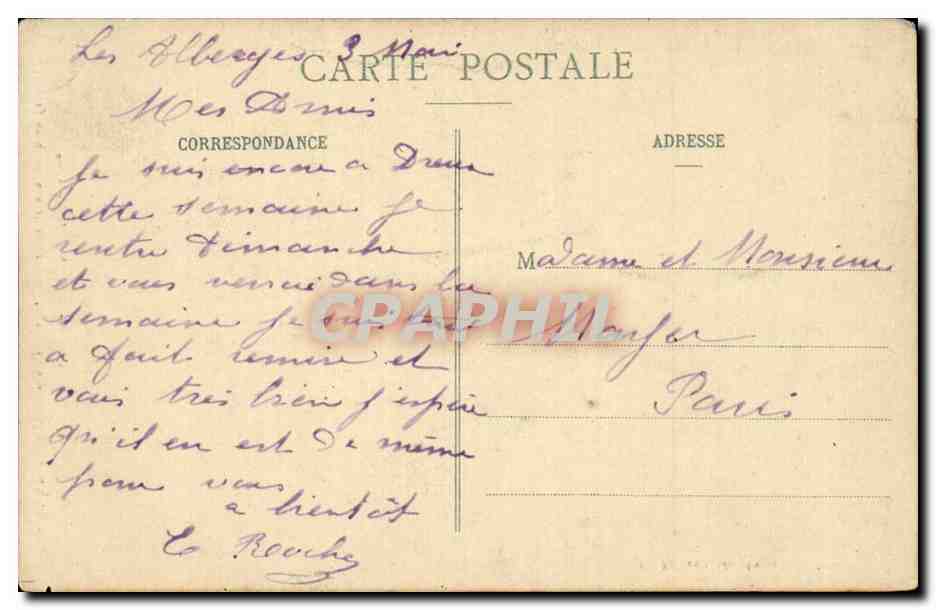 Les Alberges 3 Mai
CARTE POSTALE
Mes Amis
CORRESPONDANCE
Je suis encore a Dreux
cette semaine je
rentre Dimanche
et vous verrai dans la
semaine je suis tout
a fait remise et
vais très bien j'espère
qu'il en est de même
pour vous
a bientôt
Roche
ADRESSE
Madame et Monsieur
Paris
CPAPHIL